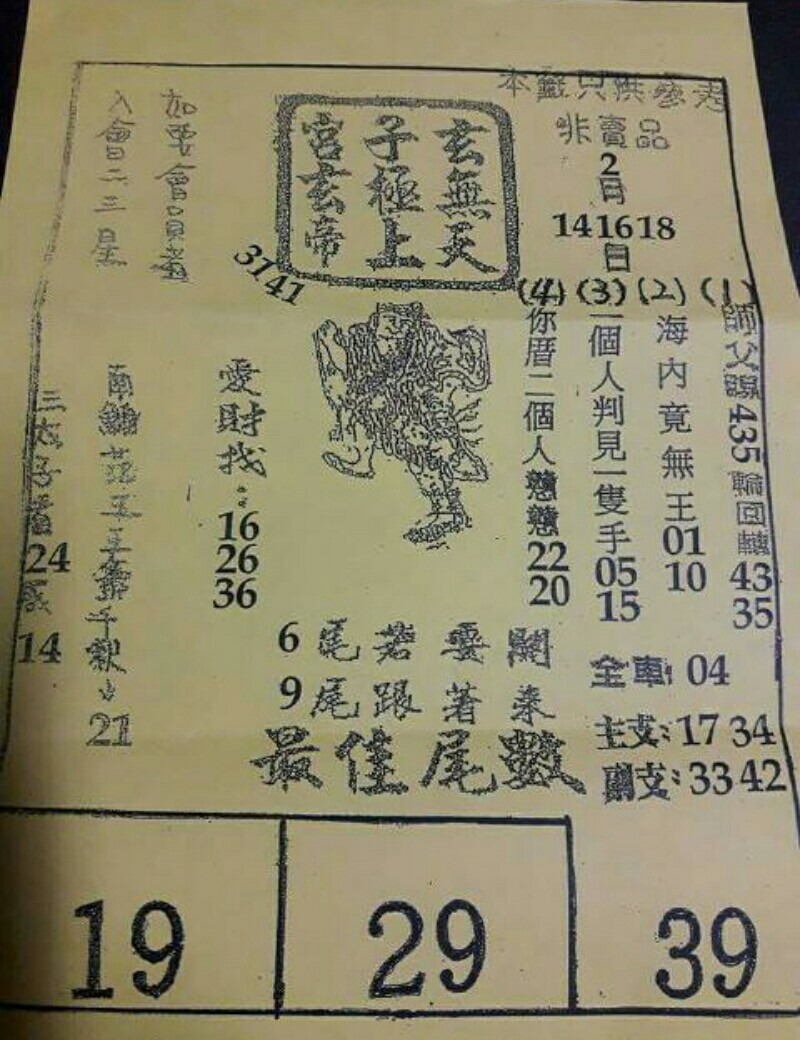 本籤只供參考
非賣品
2
月
14 16 18
日
玄無天
子極上
宮玄帝
如要會員者
入會二三星
31 41
(1)
師父賜435輪回轉
43
35
(2)
海內竟無王
01
10
(3)
一個人判見一隻手
05
15
(4)
你厝二個人戇戇
22
20
愛財找:
16
26
36
南鯤
五王爺千歲
21
三太子
24
14
6尾若要開
9尾跟著來
最佳尾數
全車:04
主支:17 34
副支:33 42
19
29
39